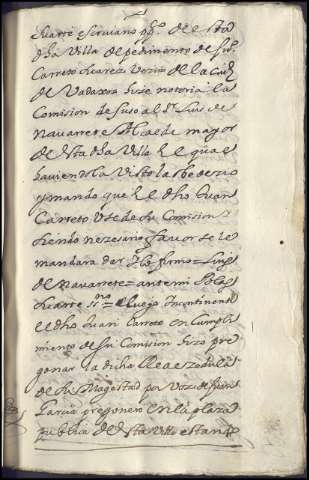 duarte escrivano pp.co de esta
dha Villa de pedimento de Ju.o
Carreto suarez Vezino de la Ciu.d
de Vadaxoz hize notoria la
Comision de suso al Sr. Luis de
Navarrete Alcalde mayor
de esta dha Villa El qual
haviendola Visto la obedezio
y mando que el dho Juan
Carreto Use de su Comision y
siendo nezesario favor se le
mandara dar I lo firmo = Luis
de navarrete = ante mi
Duarte ss.no = E luego Incontinente
el dho Juan Carreto en Cumpli
miento de su Comision hizo pre
gonar la dicha Real zedula
de su Magestad por Voz de Juan
Garcia pregonero en la plaza
publica de esta Villa estando